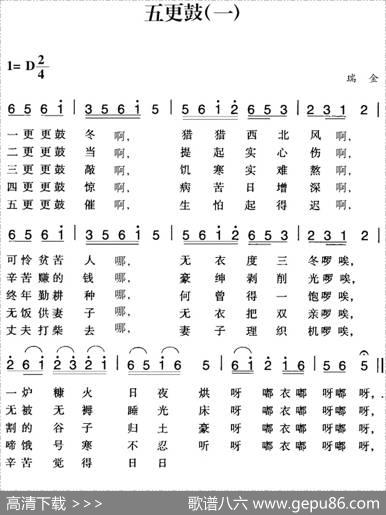 五更鼓(一)
1=D 2/4
瑞金
6 5 6 i 3 5 6 i 5 6 i 2 6 5 6 5 2 3 1 2
一更更鼓冬啊, 猎猎西北风啊,
二更更鼓当啊, 提起实心伤啊,
三更更鼓敲啊, 饥寒实难熬啊,
四更更鼓惊啊, 病苦日增深啊,
五更更鼓催啊, 生怕起得迟啊,
6 5 6 i 3 5 6 i 5 6 i 2 6 5 6 5 2 3 1 2
可怜贫苦人哪, 无衣度三冬啰唉,
辛苦赚的钱哪, 豪绅剥削光啰唉,
终年勤耕种哪, 何曾得一饱啰唉,
无饭供妻子哪, 无衣把双亲啰唉,
丈夫打柴去哪, 妻子理织机啰唉,
2 6 i 2 6 i 2 i 6 i 6 5 5 6 i 2 6 5 6 5 6 5
一炉糠火日夜烘呀嘟衣嘟呀嘟呀,
无被无褥睡光床呀嘟衣嘟呀嘟呀,
割的谷子归土豪呀嘟衣嘟呀嘟呀,
啼饿号寒不忍听呀嘟衣嘟呀嘟呀,
辛苦觉得日日
高清下载 >>> 歌谱八六 www.gepu86.com